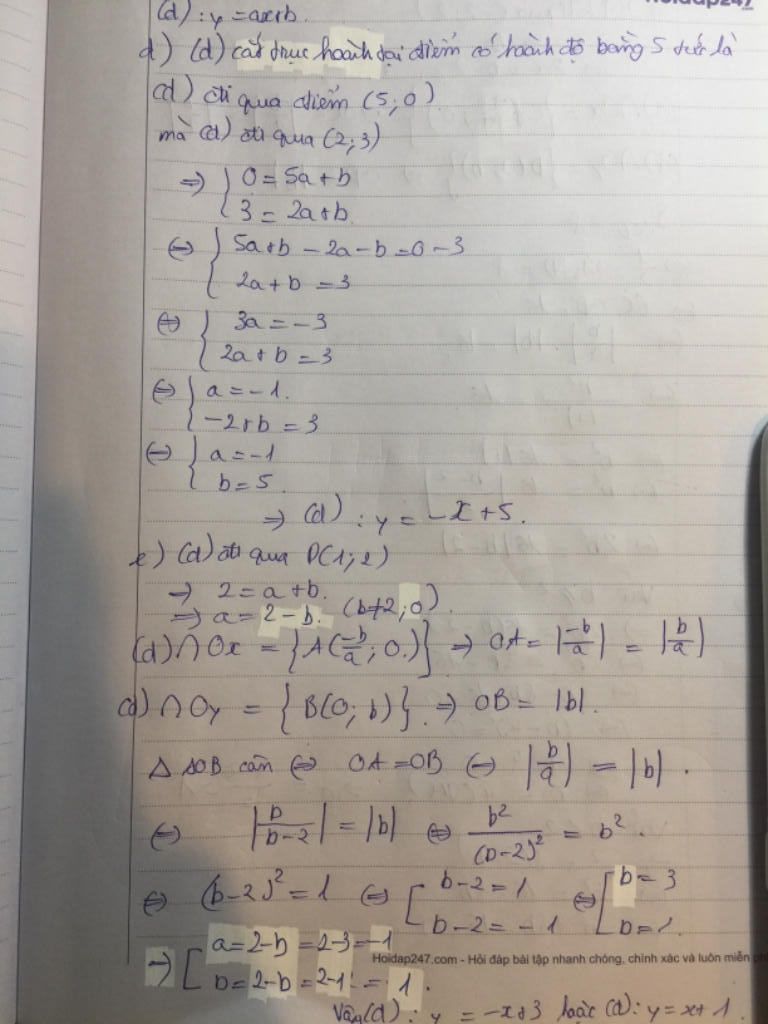 Hoidap247
(d): y = ax+b.
d) (d) cắt trục hoành tại điểm có hoành độ bằng 5 tức là
(d) đi qua điểm (5;0)
mà (d) đi qua (2;3)
⇒ { 0 = 5a+b
3 = 2a+b
⇔ { 5a+b - 2a - b = 0 - 3
2a + b = 3
⇔ { 3a = -3
2a+b = 3
⇔ { a = -1.
-2+b = 3
⇔ { a = -1
b = 5.
⇒ (d): y = -x+5.
e) (d) đi qua D(1;2)
⇒ 2 = a+b.
⇒ a = 2-b. (b≠2;0).
(d)∩Ox = {A(-b/a; 0.)} ⇒ OA = |-b/a| = |b/a|
(d)∩Oy = {B(0; b)}. ⇒ OB = |b|.
Δ AOB cân ⇔ OA = OB ⇔ |b/a| = |b|.
⇔ |b/b-2| = |b| ⇔ b²/(b-2)² = b².
⇔ (b-2)² = 1 ⇔ [ b-2 = 1 ⇔ [ b = 3
b-2 = -1 b = 1.
⇒ [ a = 2-b = 2-3 = -1
b = 2-b = 2-1 = 1.
Hoidap247.com - Hỏi đáp bài tập nhanh chóng, chính xác và luôn miễn ph
Vậy (d): y = -x+3 hoặc (d): y = x+1.